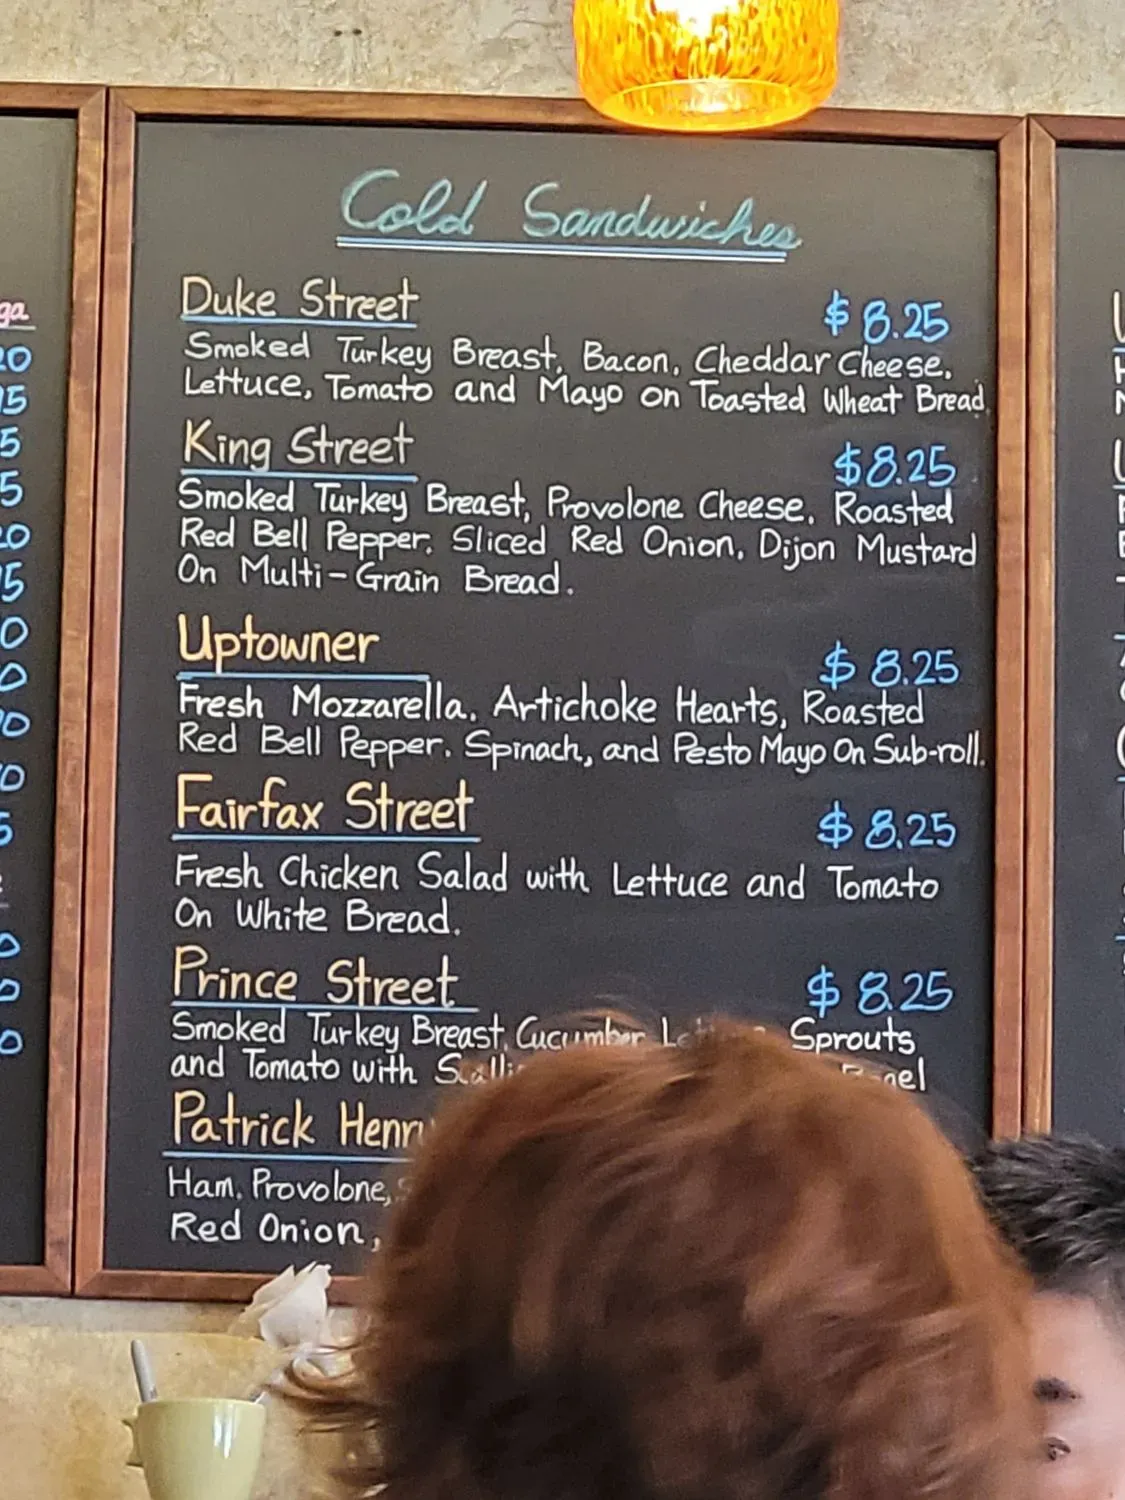 Cold Sandwiches
Duke Street $8.25
Smoked Turkey Breast, Bacon, Cheddar Cheese,
Lettuce, Tomato and Mayo on Toasted Wheat Bread
King Street $8.25
Smoked Turkey Breast, Provolone Cheese, Roasted
Red Bell Pepper, Sliced Red Onion, Dijon Mustard
On Multi-Grain Bread.
Uptowner $8.25
Fresh Mozzarella, Artichoke Hearts, Roasted
Red Bell Pepper, Spinach, and Pesto Mayo On Sub-roll.
Fairfax Street $8.25
Fresh Chicken Salad with Lettuce and Tomato
On White Bread.
Prince Street $8.25
Smoked Turkey Breast, Cucumber Sprouts
and Tomato with
Patrick Henry
Ham, Provolone,
Red Onion,